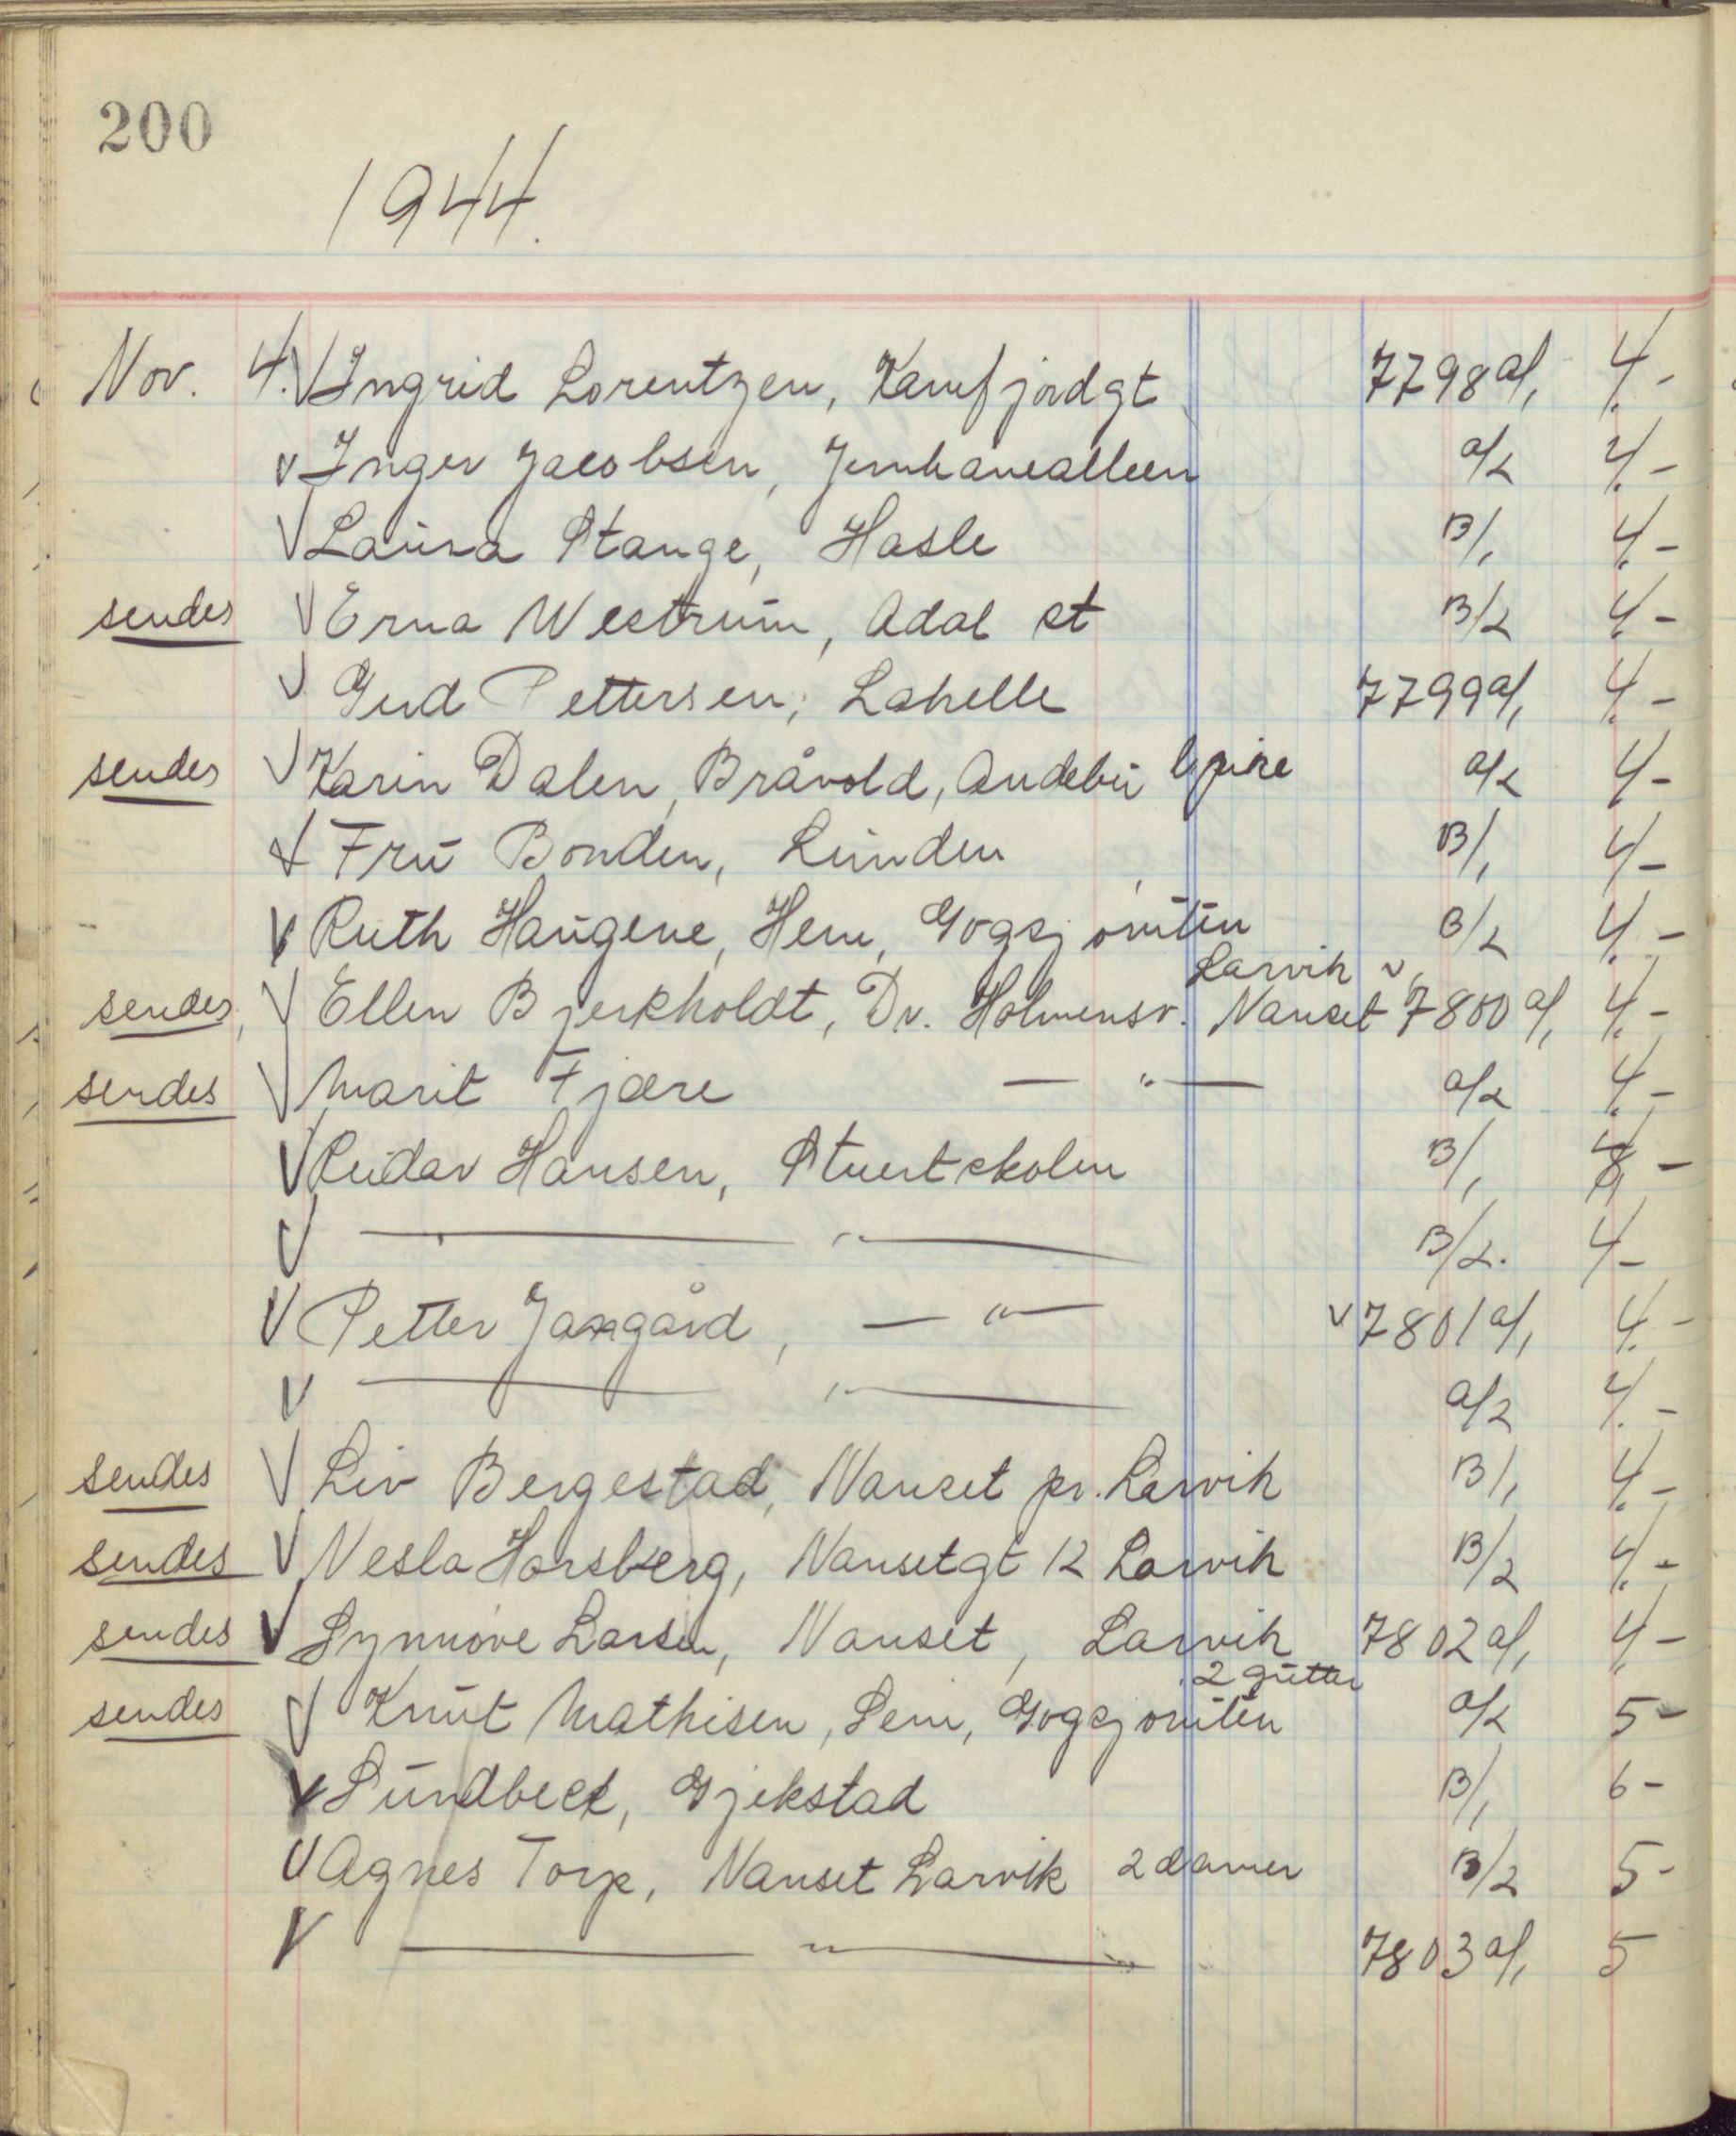 200
1944.
Nov. 4. √ Ingrid Lorentzen, Kamfjordgt 7798 a/1 4.-
v Inger Jacobsen, Jernbanealleen a/2 4.-
√ Laura Stange, Hasle B/1 4.-
sendes √ Erna Westrum, Adal st B/2 4.-
√ Gerd Pettersen, Lahelle 7799 a/1 4.-
sendes √ Karin Dalen, Bråvold, Andebu a/2 4-
√ Fru Bonden, Lunden B/1 4-
v Ruth Haugene, Hem, Gogsjøruten B/2 4.-
Larvik v
sendes √ Ellen Bjerkholdt, Dr. Holmensv. Nanset 7800 a/1 4.-
sendes √ Marit Fjære — " — a/2 4.-
√ Reidar Hansen, Stuertskolen B/1 4 -
√ — " — B/2. 4-
√ Petter Jangård, — " — v 7801 a/1 4.-
v — " — a/2 4.-
sendes √ Liv Bergestad, Nanset pr. Larvik B/1 4.-
sendes √ Nesla Horsberg, Nansetgt 12 Larvik B/2 4.-
sendes √ Synnøve Larsen, Nanset, Larvik 7802 a/1 4-
2 gutter
sendes √ Knut Mathisen, Lem, Gogsjøruten a/2 5-
v Lundbeck, Gjekstad B/1 6-
√ Agnes Torp, Nanset Larvik 2 damer B/2 5-
√ — " — 7803 a/1 5